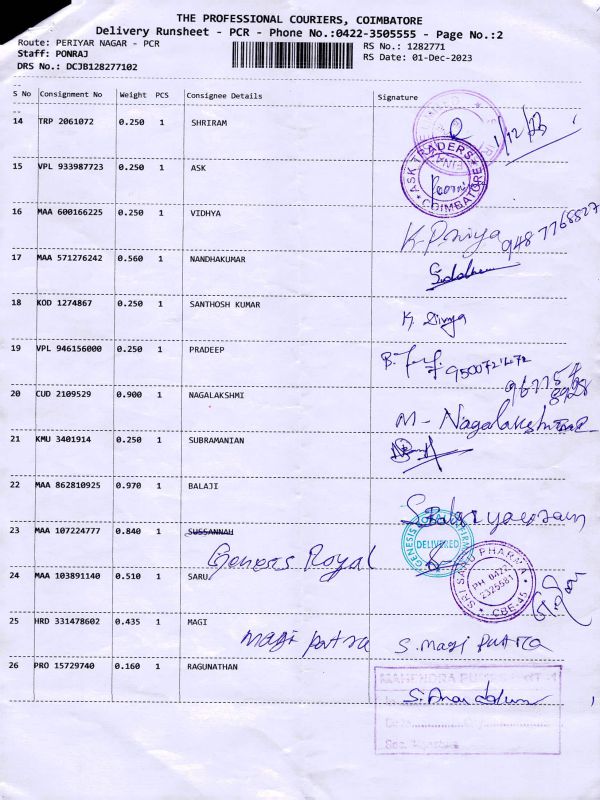 THE PROFESSIONAL COURIERS, COIMBATORE
Delivery Runsheet - PCR - Phone No.:0422-3505555 - Page No.:2
Route: PERIYAR NAGAR - PCR RS No.: 1282771
Staff: PONRAJ RS Date: 01-Dec-2023
DRS No.: DCJB128277102
S No Consignment No Weight PCS Consignee Details Signature
14 TRP 2061072 0.250 1 SHRIRAM 1/12/23
15 VPL 933987723 0.250 1 ASK
ASK TRADERS
COIMBATORE
16 MAA 600166225 0.250 1 VIDHYA
K. Priya 948 7768827
17 MAA 571276242 0.560 1 NANDHAKUMAR
18 KOD 1274867 0.250 1 SANTHOSH KUMAR
K. Divya
19 VPL 946156000 0.250 1 PRADEEP
20 CUD 2109529 0.900 1 NAGALAKSHMI
M - Nagalakshmi
21 KMU 3401914 0.250 1 SUBRAMANIAN
22 MAA 862810925 0.970 1 BALAJI
23 MAA 107224777 0.840 1 SUSSANNAH
Genesis Royal
GENESIS
DELIVERED
24 MAA 103891140 0.510 1 SARUJ
SRI SAKO PHARMA
PH: 0422
2325581
CBE-45
25 HRD 331478602 0.435 1 MAGI
Magi putra S. Magi PUTRA
26 PRO 15729740 0.160 1 RAGUNATHAN
MAHENDRA PUMPS